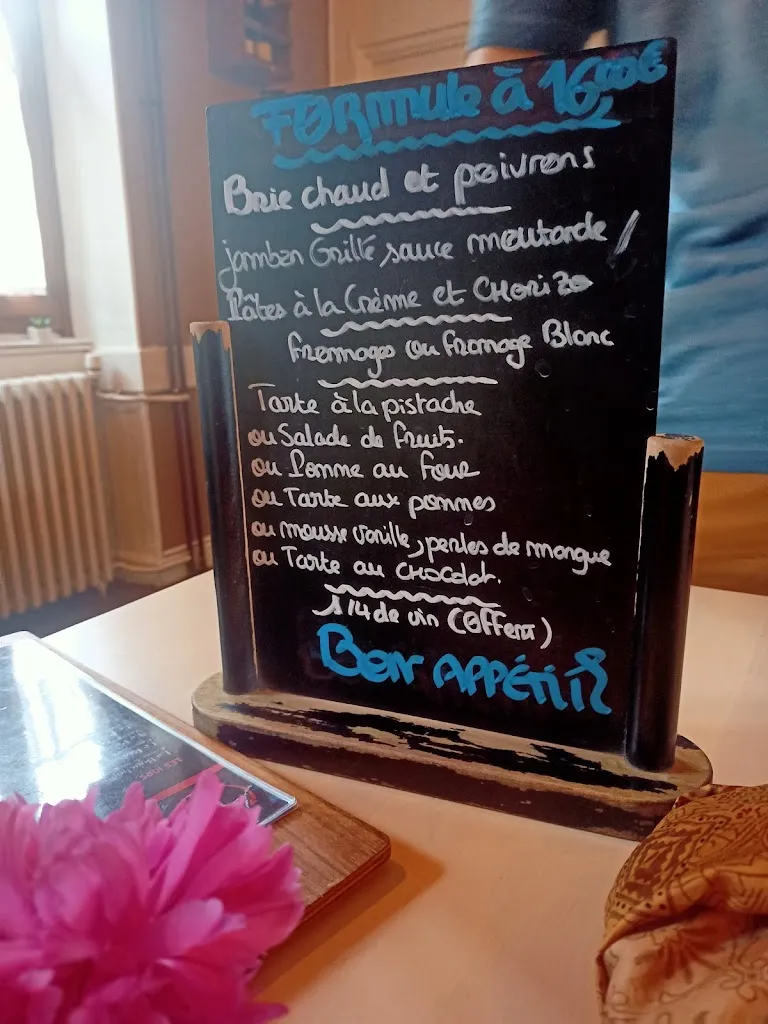 FORmule à 16,00€
Brie chaud et poivrons
jambon Grillé sauce moutarde /
Pâtes à la Crème et CHORIZO
fromages ou fromage Blanc
Tarte à la pistache
ou Salade de fruits.
ou Pomme au four
ou Tarte aux pommes
ou mousse vanille, perles de mangue
ou Tarte au CHOCOLAT.
1/4 de vin (Offert)
Bon APPÉTIT